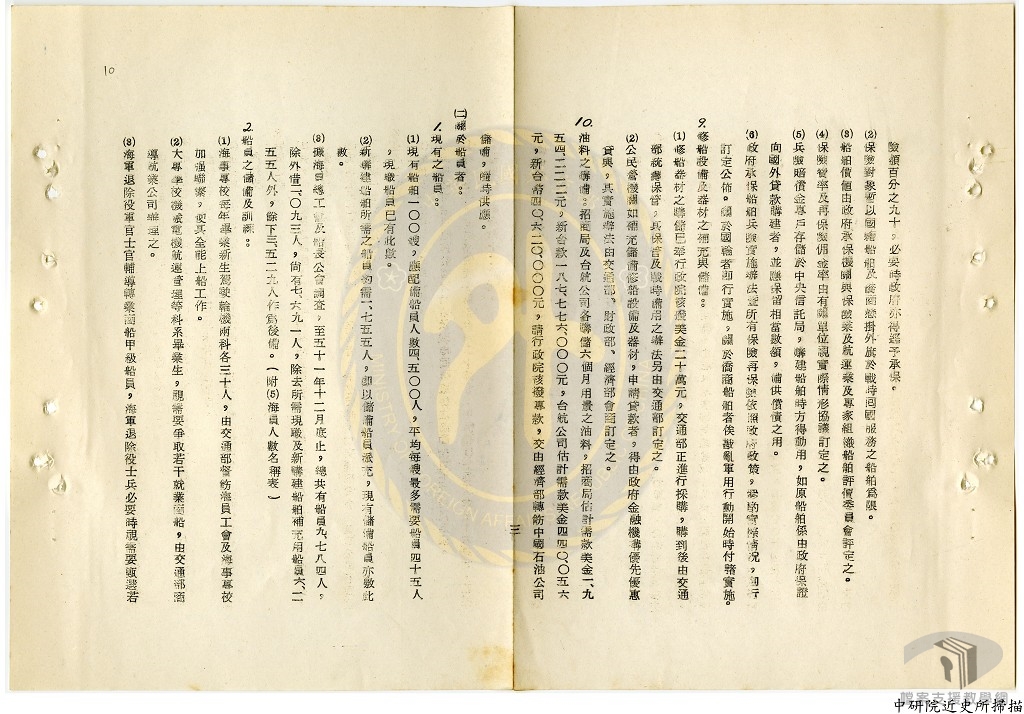 險額百分之九十，必要時政府亦得逕予承保。
(2)保險對象暫以國輪船舶及僑商懸掛外旗於戰時回國服務之船舶為限。
(3)船舶價值由政府承保機關與保險業及航運業及專家組織船舶評價委員會評定之。
(4)保險費率及再保險佣金率由有關單位視實際情形協議訂定之。
(5)兵險賠償金專戶存儲於中央信託局，購建船舶時方得動用，如原船舶係由政府保證
向國外貸款購建者，並應保留相當數額，備供償債之用。
(6)政府承保船舶兵險實施辦法
訂定公佈。關於國輪者即行實施，關於僑商船舶者俟
軍用行動開始時付諸實施。
9.修船設備及器材之補充與儲備。
(1)修船器材之購儲已奉行政院核撥美金二十萬元，交通部正進行採購，購到後由交通
部統籌保管，其保管及戰時備用之辦法另由交通部訂定之。
(2)公民營機關如補充儲備修船設備及器材，申請貸款者，得由政府金融機構優先優惠
貸與，其實施辦法由交通部、財政部、經濟部會商訂定之。
10.油料之購備。招商局及台航公司各購儲六個月用量之油料，招商局估計需款美金一、九
五四二二二元，新台款一八七七七六〇〇〇元，台航公司估計需款美金四四〇〇五六
元，新台幣四〇六二〇〇〇〇元，請行政院核撥專款，交由經濟部轉飭中國石油公司
三
儲備，隨時供應。
(二)關於船員者：
1.現有之船員。
(1)現有船舶一〇〇艘，應配備船員人數四、五〇〇人，平均每艘最多需要船員四十五人
，現職船員已有此數。
(2)新購建船舶所需之船員約需一、七五五人，即以儲備船員遞充，現有儲備船員亦敷此
數。
(3)據海員總工會及船長公會調查，至五十一年十二月底止，總共有船員九、七八四人，
除外借二、〇九三人，尚有七、六九一人，除去所需現職及新購建船舶補充用船員六、二
五五人外，餘下三、五二九人作為後備。（附(5)海員人數名稱表）
2.船員之儲備及訓練。
(1)海事專校每年畢業新生駕駛輪機兩科各三十人，由交通部督飭海員工會及海事專校
加強聯繫，使其全能上船工作。
(2)大專學校機械電機航運管理等科系畢業生，視需要爭取若干就業商船，由交通部商
導航業公司辦理之。
(3)海軍退除役軍官士官輔導轉業商船甲級船員，海軍退除役士兵必要時視需要甄選若
10
檔案支援教學網
中研院近史所掃描